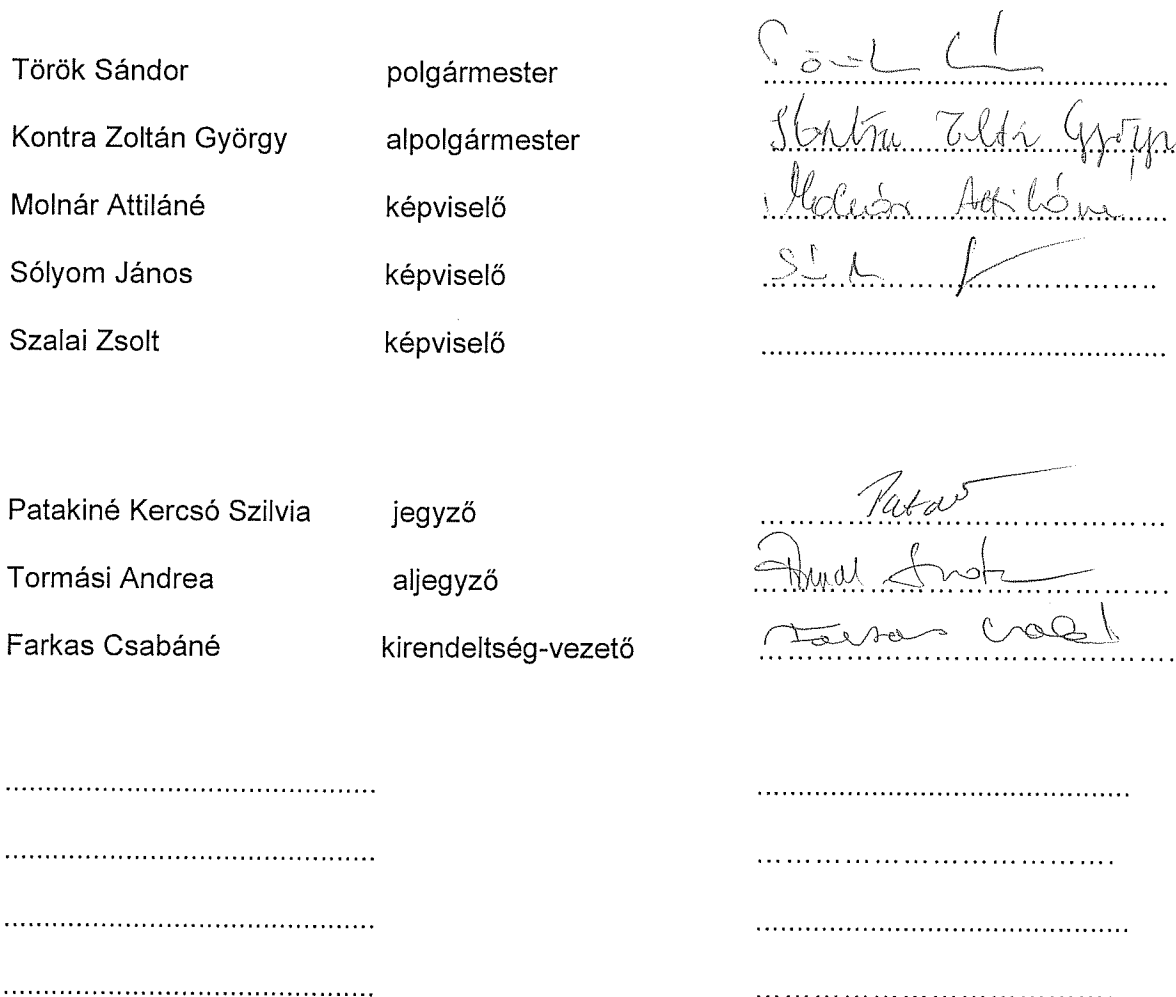 Török Sándor polgármester
Kontra Zoltán György alpolgármester Kontra Zoltán György
Molnár Attiláné képviselő Molnár Attiláné
Sólyom János képviselő
Szalai Zsolt képviselő ........................................
Patakiné Kercsó Szilvia jegyző
Tormási Andrea aljegyző
Farkas Csabáné kirendeltség-vezető Farkas